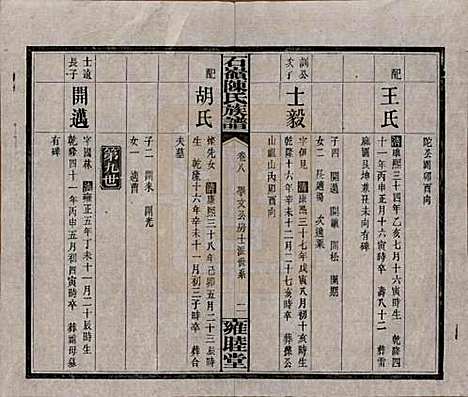 陀圣圊卯酉向
配
王氏
清康熙三十四年乙亥七月十六寅時生 乾隆四
十一年丙申正月十六寅時卒 壽八十二 葬雷
廟園艮地兼丑未向有碑
訓公
次子
士毅
字伊見 清康熙三十七年戊寅八月初十亥時生
乾隆十六年辛未十一月二十亥時卒 葬
山 山丙向
子四 開過 開 開松 開題
女二 長適 次適葉
石嶺陳氏族譜
卷八 學文公房士派世系
二
雍睦堂
配
胡氏
先女 清康熙三十八年己卯五月二十三辰時生
乾隆十六年辛未十一月初三時卒 葬合
夫墓
子二 開來 開光
女一 適曹
第九世
士遠
長子
開邁
字國林 清雍正五年丁未十一月二十辰時生
乾隆四十一年丙申五月初三寅時卒 葬祖母墓
有碑